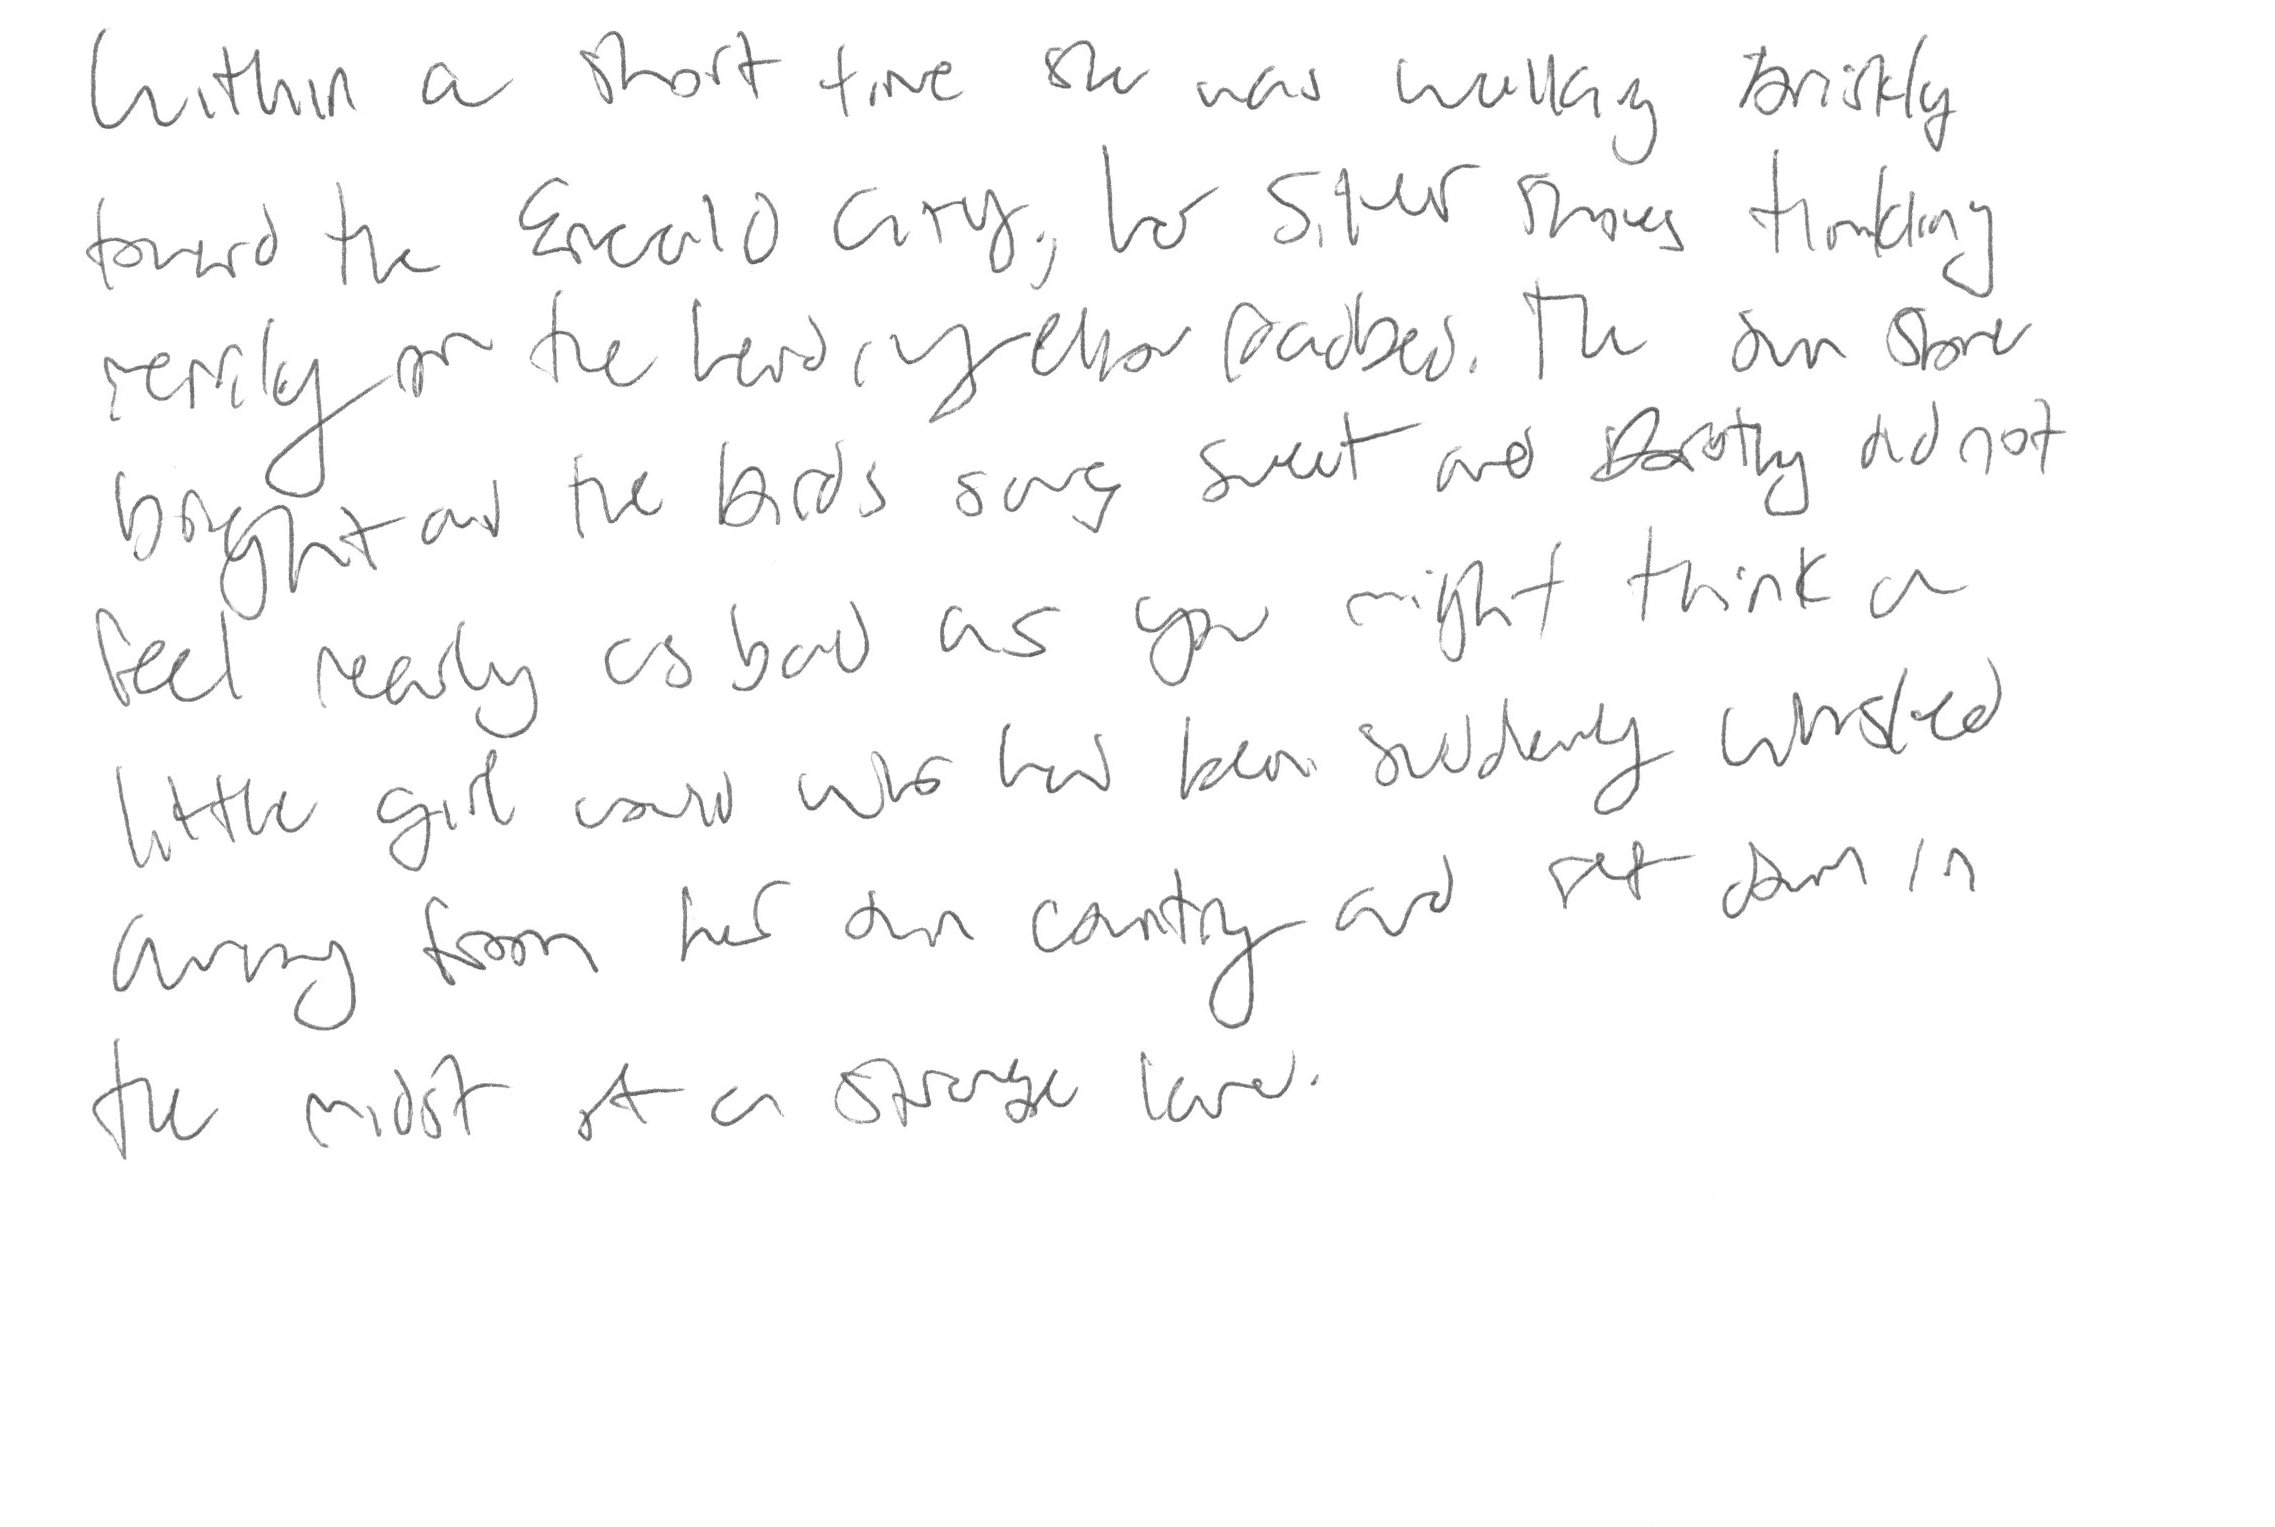 Within a short time she was walking briskly
toward the Emerald City, her Silver Shoes tinkling
merrily on the hard, yellow roadbed. The sun shone
bright and the birds sang sweet and Dorothy did not
feel nearly as bad as you might think a
little girl would who had been suddenly whisked
away from her own country and set down in
the midst of a strange land.